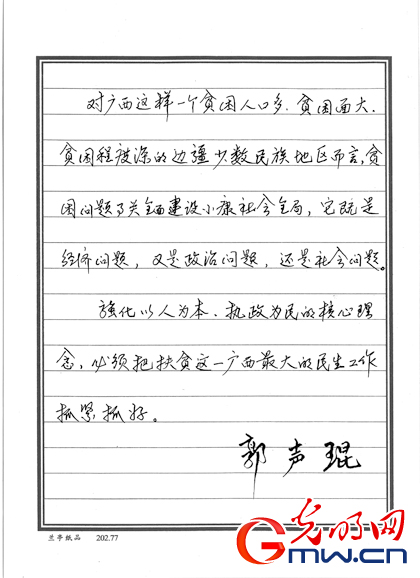 对广西这样一个贫困人口多、贫困面大、
贫困程度深的边疆少数民族地区而言，贫
困问题事关全面建设小康社会全局，它既是
经济问题，又是政治问题，还是社会问题。
强化以人为本、执政为民的核心理
念，必须把扶贫这一广西最大的民生工作
抓紧抓好。
郭声琨
兰亭纸品 202.77
光明网
GMW.cn